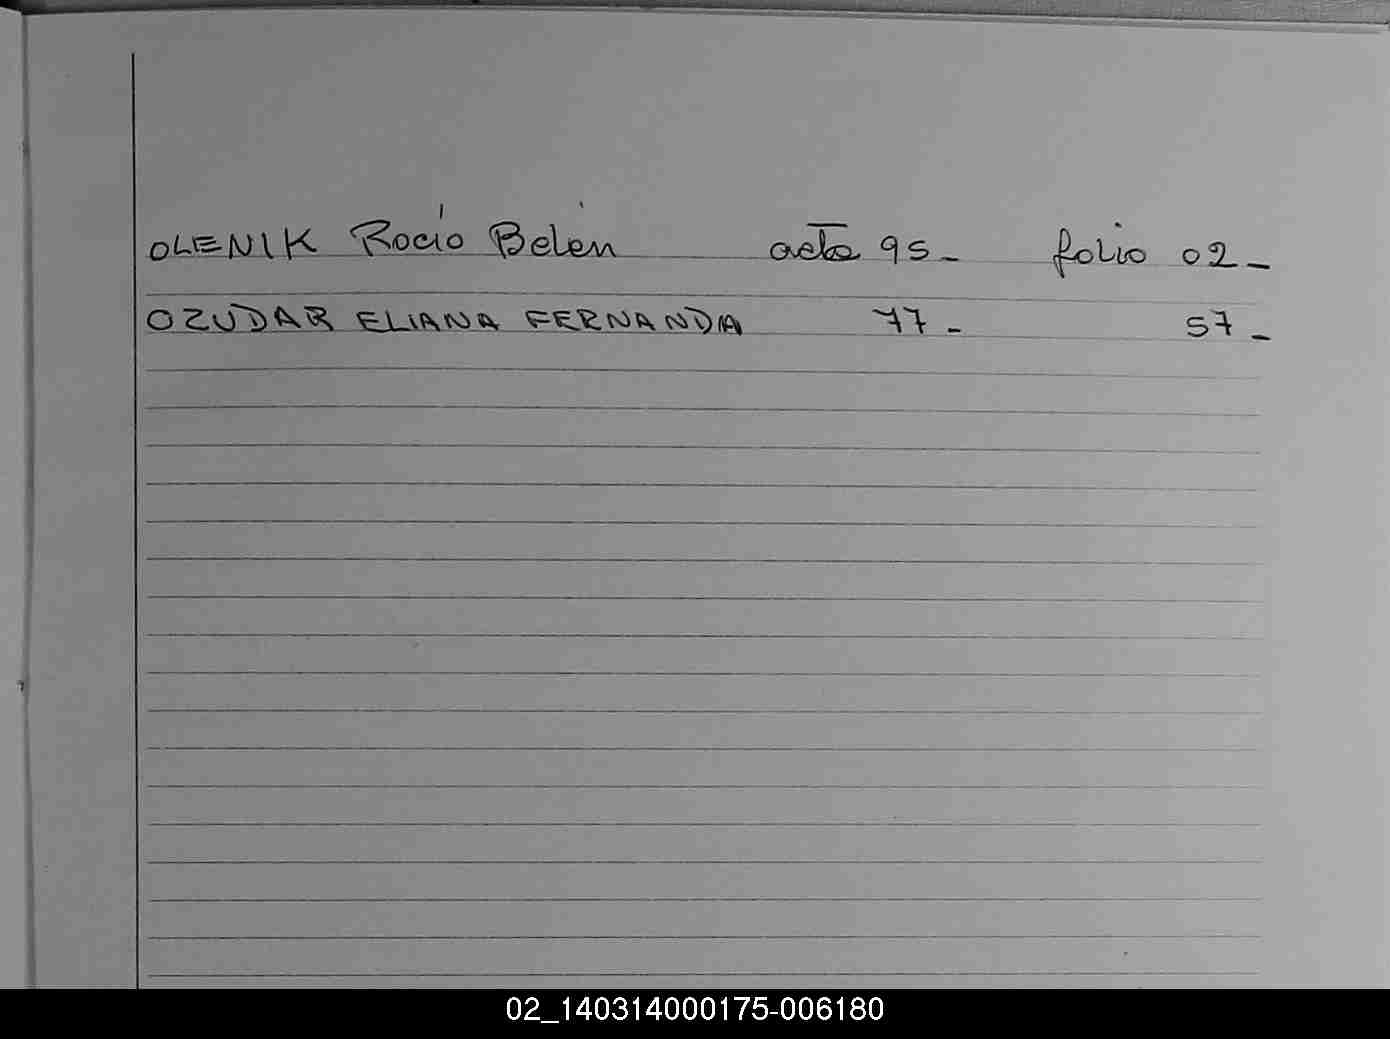 OLENIK Rocío Belén acta 95- folio 02-
OZUDAR ELIANA FERNANDA 77- 57-
02_140314000175-006180